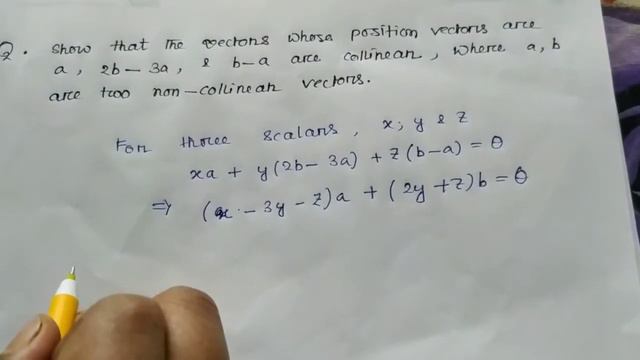 Q. Show that the vectors whosa position vectors are
a, 2b - 3a, & b-a are collinear, where a, b
are two non-collinear vectors.
For three scalars, x, y & z
xa + y(2b - 3a) + z(b-a) = θ
⇒ (x - 3y - z)a + (2y + z)b = θ